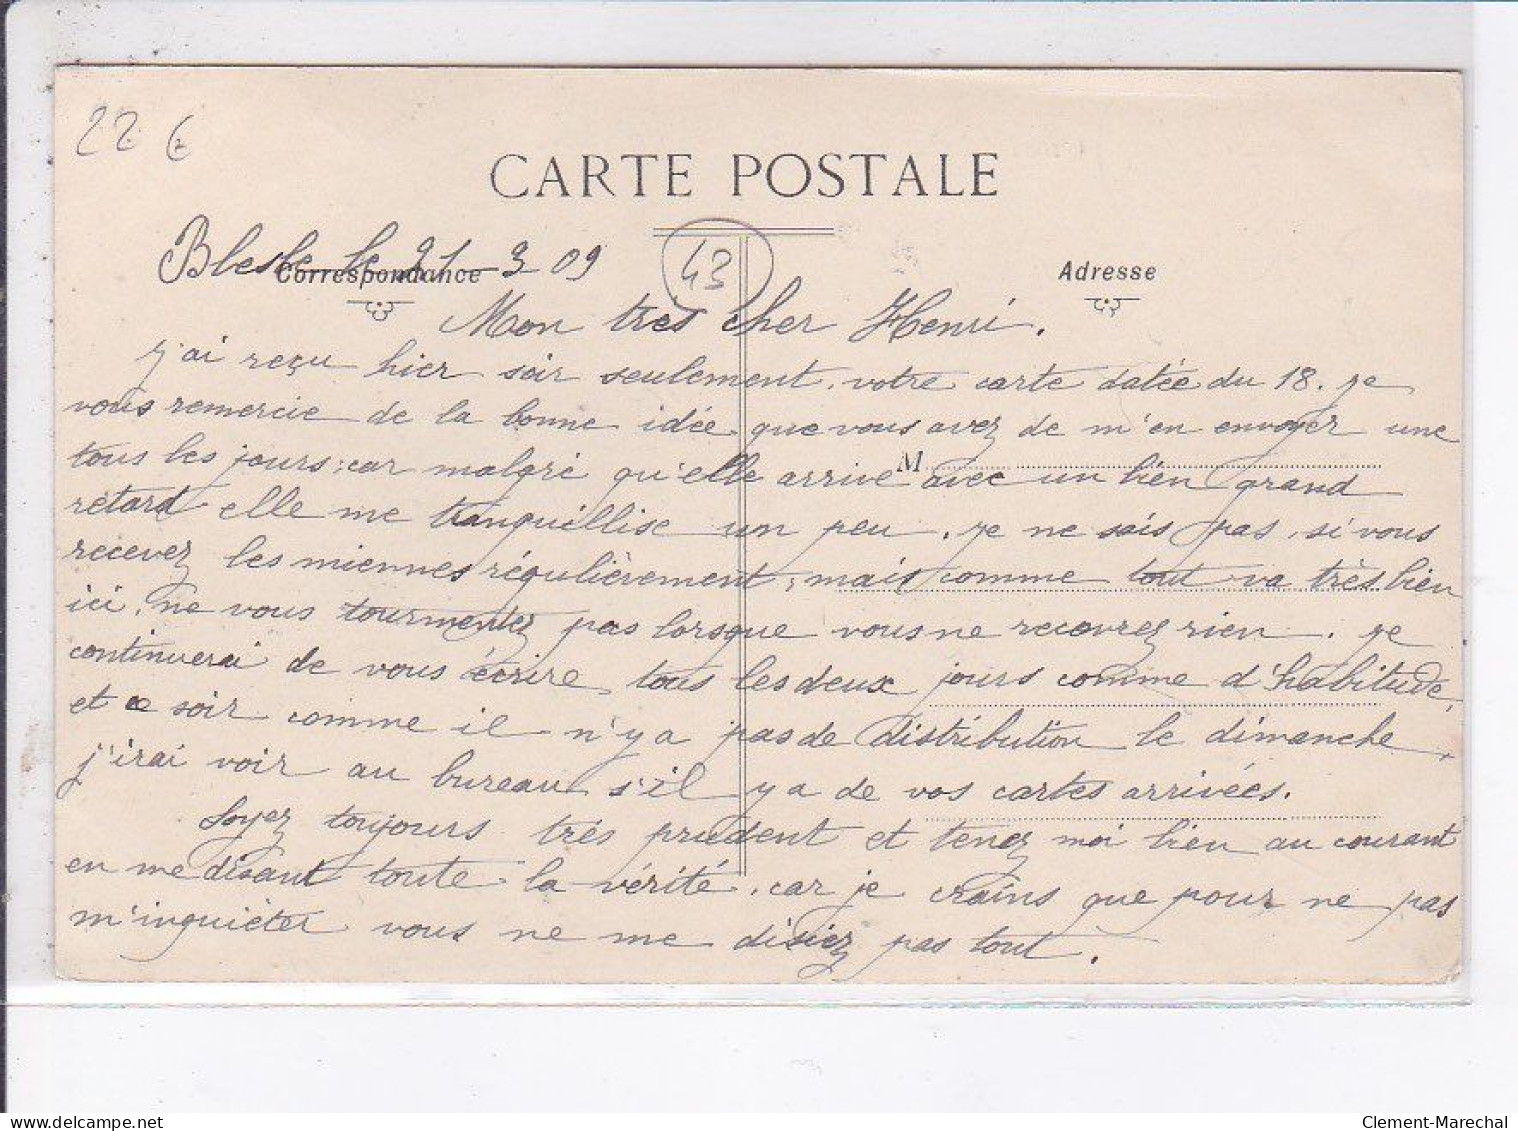 22 €
CARTE POSTALE
Blesle le 21-3-09
43
Correspondance
Adresse
Mon très cher Henri.
J'ai reçu hier soir seulement votre carte datée du 18. je
vous remercie de la bonne idée que vous avez de m'en envoyer une
tous les jours; car malgré qu'elle arrive avec un bien grand
M
retard elle me tranquillise un peu. je ne sais pas si vous
recevez les miennes régulièrement; mais comme tout va très bien
ici, ne vous tourmentez pas lorsque vous ne recevrez rien. je
continuerai de vous écrire tous les deux jours comme d'habitude,
et ce soir comme il n'y a pas de distribution le dimanche,
j'irai voir au bureau s'il y a de vos cartes arrivées.
Soyez toujours très prudent et tenez moi bien au courant
en me disant toute la vérité, car je crains que pour ne pas
m'inquiéter vous ne me disiez pas tout.
www.delcampe.net
Clement-Marechal